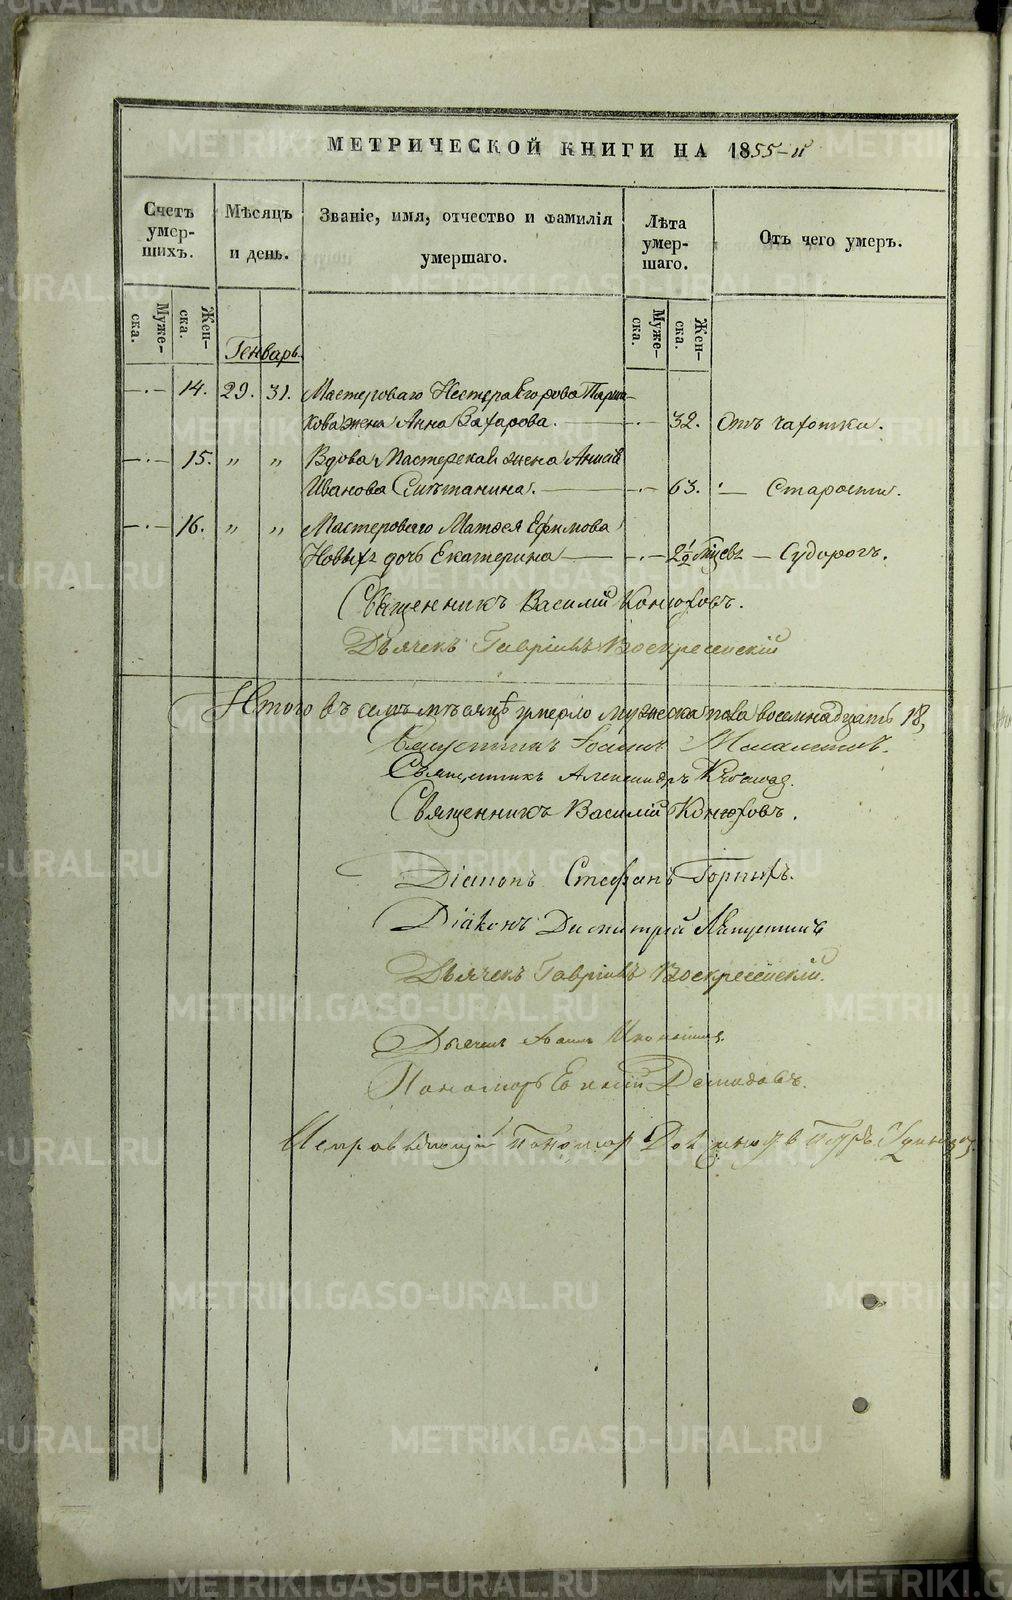 МЕТРИЧЕСКОЙ КНИГИ НА 1855-й
Счетъ умер-шихъ.
Мѣсяцъ и день.
Званіе, имя, отчество и фамилія умершаго.
Лѣта умер-шаго.
Отъ чего умеръ.
Муже-ска.
Жен-ска.
Муже-ска.
Жен-ска.
Генварь.
14. 29. 31. Мастероваго Нестера Егорова
кова жена Анна Захарова. 32. Отъ чахотки.
15. " " Вдова Мастерская жена
Иванова Смѣтанина. 63. — Старости.
16. " " Мастероваго Матвея Ефимова
Новыхъ дочь Екатерина — 2½ — Судорогъ.
Священникъ Василій Конюховъ.
Дьячекъ Гавріилъ Воскресенскій
Итого въ семъ мѣсяцѣ умерло мужеска пола восемнадцать 18,
Священникъ Александръ
Священникъ Василій Конюховъ.
Діаконъ Стефанъ
Діаконъ Димитрій
Дьячекъ Гавріилъ Воскресенскій.
Дьячекъ
Пономарь Демидовъ.
Пономар
METRIKI.GASO-URAL.RU